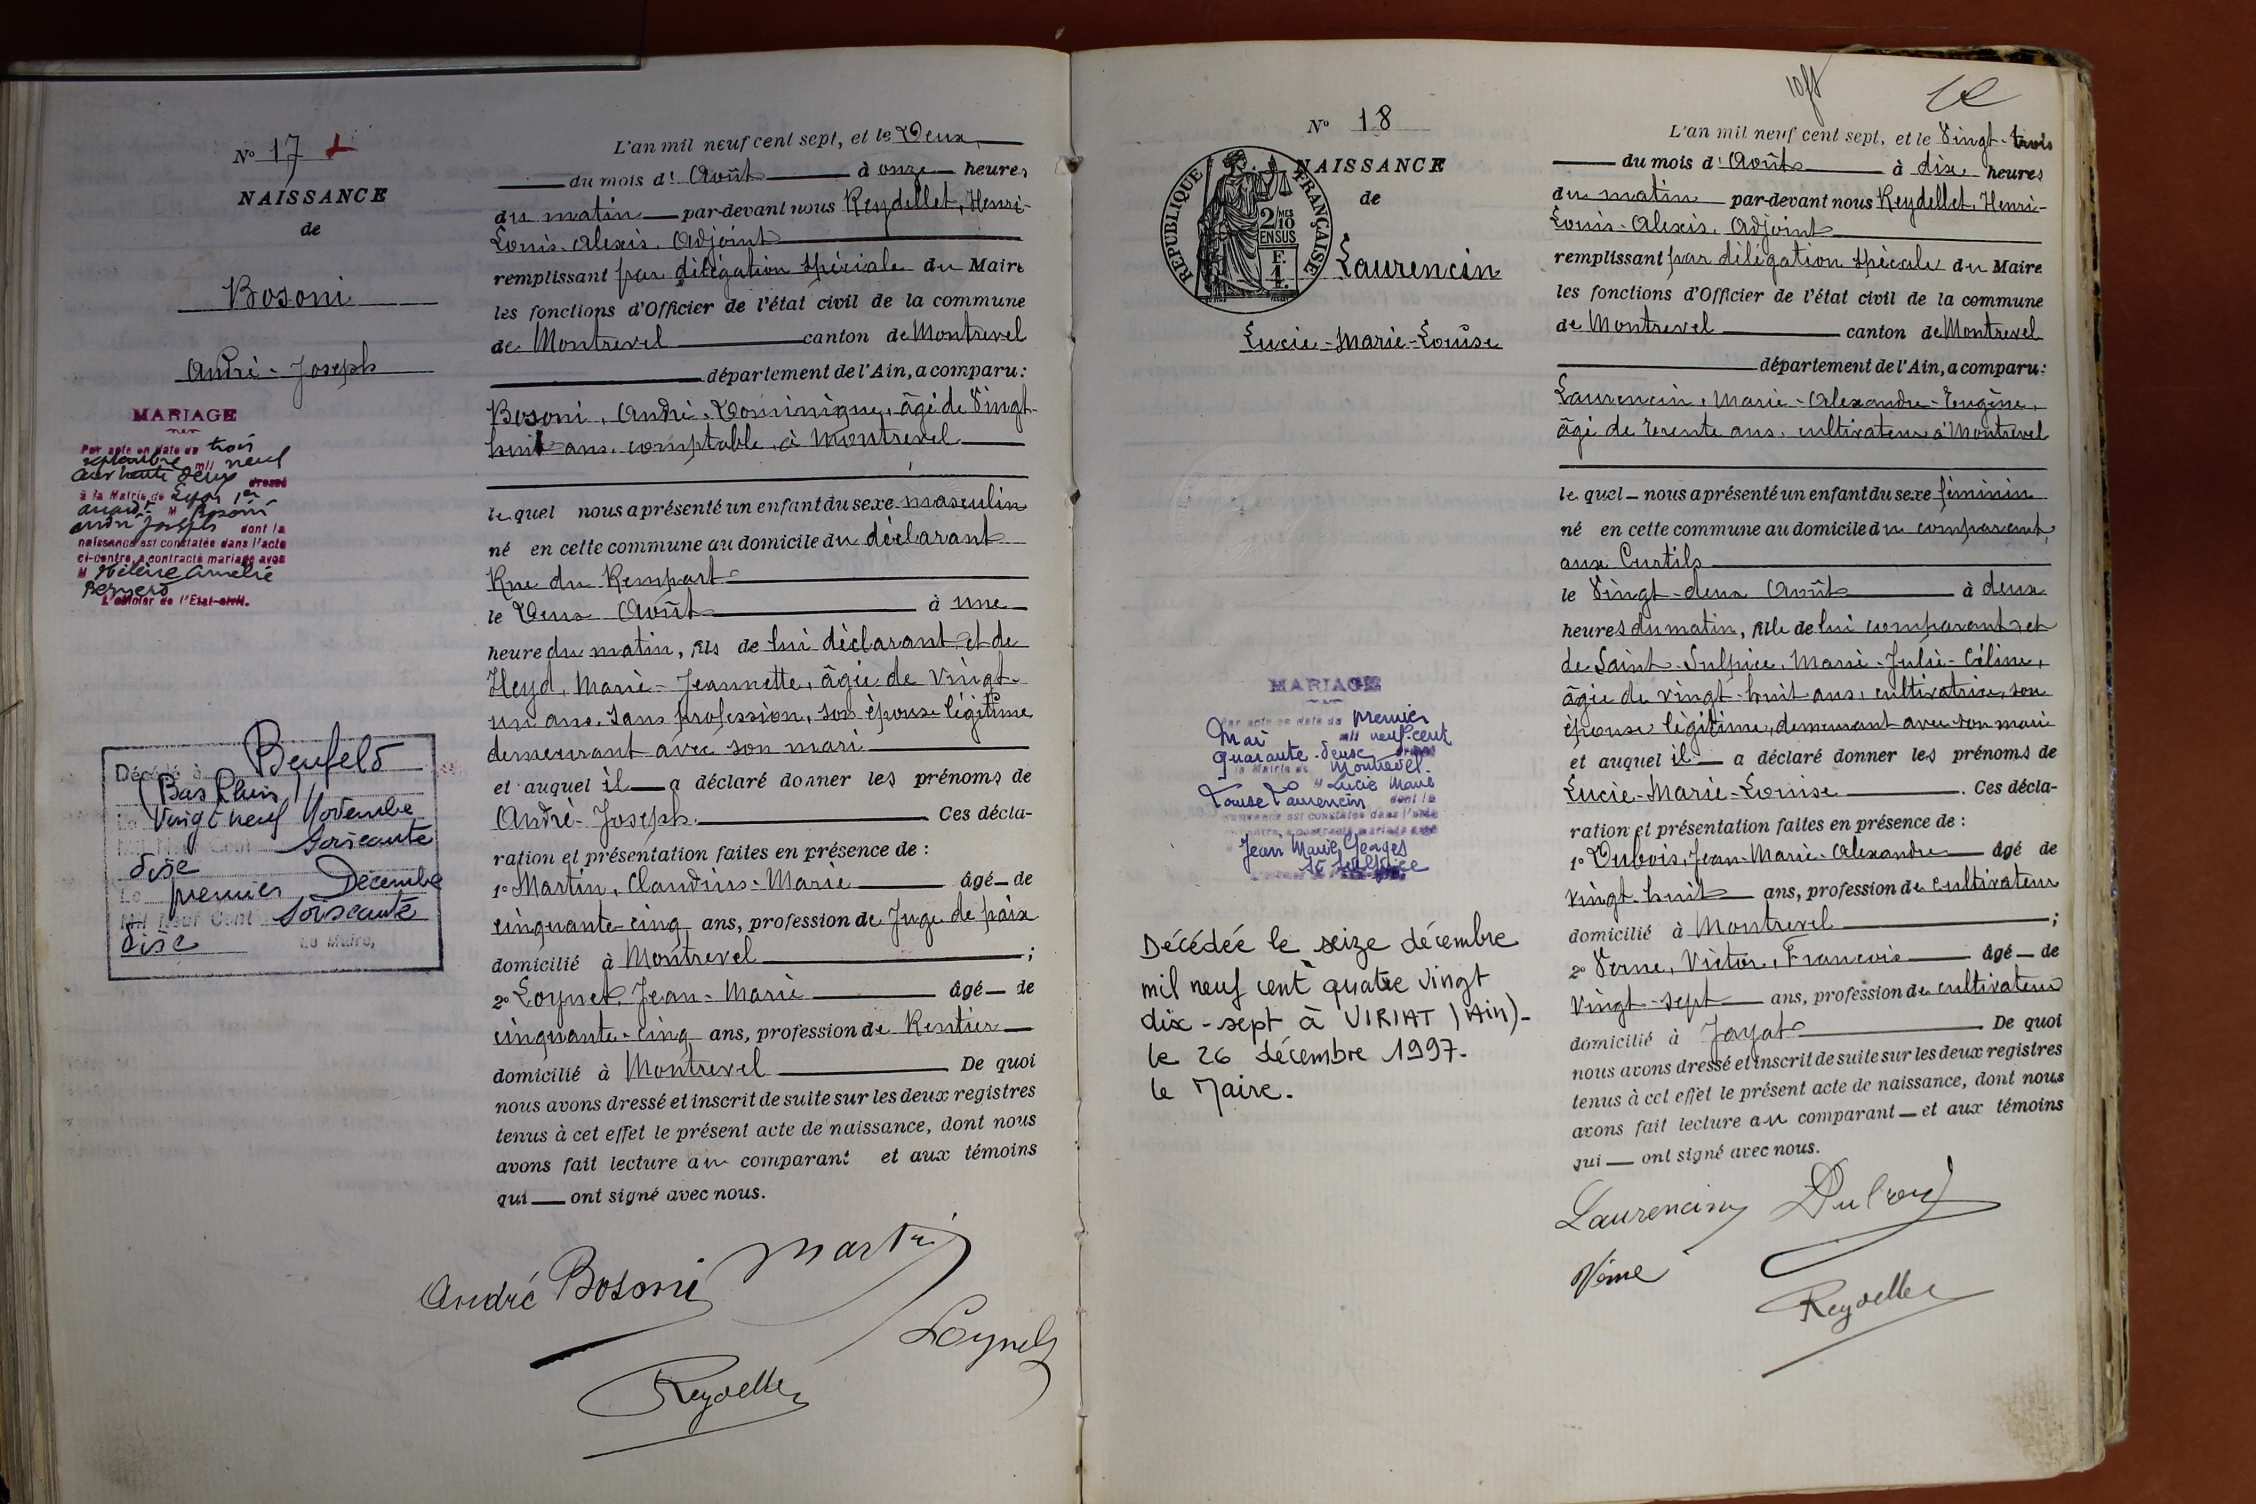 N° 17
NAISSANCE
de
Bosoni
André - Joseph
MARIAGE
Par acte en date du trois
septembre mil neuf
cent trente deux dressé
à la Mairie de Lyon 1er
arrondt M Bosoni
André Joseph dont la
naissance est constatée dans l'acte
ci-contre, a contracté mariage avec
M Hélène Amélie
L'officier de l'Etat-civil.
Décédé à Benfeld
(Bas Rhin)
Le Vingt neuf Novembre
Mil Neuf Cent Soixante
dixe
Le premier Décembre
Mil Neuf Cent Soixante
dixe Le Maire,
L'an mil neuf cent sept, et le Deux
du mois d' Août à onze heures
du matin par-devant nous Reydellet, Henri-
Louis-Alexis, Adjoint
remplissant par délégation spéciale du Maire
les fonctions d'Officier de l'état civil de la commune
de Montrevel canton de Montrevel
département de l'Ain, a comparu:
Bosoni, André-Dominique, âgé de Vingt-
huit ans, comptable, à Montrevel
le quel nous a présenté un enfant du sexe masculin
né en cette commune au domicile du déclarant
Rue du Rempart
le Deux Août à une
heure du matin, fils de lui déclarant et de
Heyd, Marie-Jeannette, âgée de vingt-
un ans, sans profession, son épouse légitime
demeurant avec son mari
et auquel il a déclaré donner les prénoms de
André-Joseph. Ces décla-
ration et présentation faites en présence de :
1° Martin, Claudius-Marie âgé de
cinquante-cinq ans, profession de Juge de paix
domicilié à Montrevel ;
2° Loynet, Jean-Marie âgé de
cinquante-cinq ans, profession de Rentier
domicilié à Montrevel De quoi
nous avons dressé et inscrit de suite sur les deux registres
tenus à cet effet le présent acte de naissance, dont nous
avons fait lecture au comparant et aux témoins
qui ont signé avec nous.
André Bosoni Martin
Loynet
Reydellet
N° 18
NAISSANCE
de
RÉPUBLIQUE FRANÇAISE
2/10 MES
EN SUS
F.
1.
Laurencin
Lucie-Marie-Louise
MARIAGE
Par acte en date du premier
Mai mil neuf cent
quarante-deux dressé
à la Mairie de Montrevel.
M Lucie Marie
Louise Laurencin dont la
naissance est constatée dans l'acte
ci-contre, a contracté mariage avec
Jean Marie Georges
St Sulpice
Décédée le seize décembre
mil neuf cent quatre vingt
dix-sept à VIRIAT (Ain)-
le 26 décembre 1997-
le Maire.
L'an mil neuf cent sept, et le Vingt-trois
du mois d' Août à dix heures
du matin par-devant nous Reydellet, Henri-
Louis-Alexis, Adjoint
remplissant par délégation spécale du Maire
les fonctions d'Officier de l'état civil de la commune
de Montrevel canton de Montrevel
département de l'Ain, a comparu:
Laurencin, Marie-Alexandre-Eugène,
âgé de trente ans, cultivateur à Montrevel
le quel nous a présenté un enfant du sexe féminin
né en cette commune au domicile du comparant,
aux Curtils
le Vingt-deux Août à deux
heures du matin, fille de lui comparant et
de Saint-Sulpice, Marie-Julie-Céline,
âgée de vingt-huit ans, cultivatrice, son
épouse légitime, demeurant avec son mari
et auquel il a déclaré donner les prénoms de
Lucie-Marie-Louise. Ces décla-
ration et présentation faites en présence de :
1° Dubois, Jean-Marie-Alexandre âgé de
vingt-huit ans, profession de cultivateur
domicilié à Montrevel ;
2° Verne, Victor, Francois âgé de
vingt-sept ans, profession de cultivateur
domicilié à Jayat De quoi
nous avons dressé et inscrit de suite sur les deux registres
tenus à cet effet le présent acte de naissance, dont nous
avons fait lecture au comparant et aux témoins
qui ont signé avec nous.
Laurencin Dubois
Verne
Reydellet